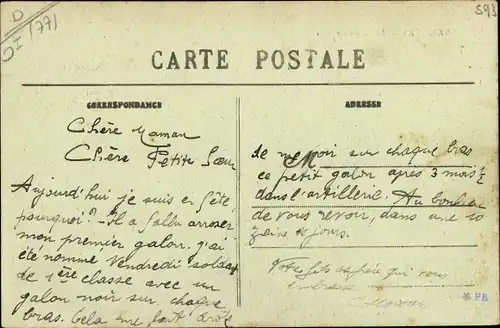 D
DI 1771
593
CARTE POSTALE
CORRESPONDANCE
ADRESSE
Chère Maman
Chère Petite Sœur
Aujourd'hui je suis en fête
pourquoi? - Il a fallu arroser
mon premier galon. J'ai
été nommé Vendredi soldat
de 1ère classe avec un
galon noir sur chaque
bras. Cela me fait drôle
de me voir sur chaque bras
ce petit galon après 3 mois ½
dans l'artillerie. Au bonheur
de vous revoir, dans une 10
zaine de jours.
Votre fils et frère qui vous
embrasse
* PB